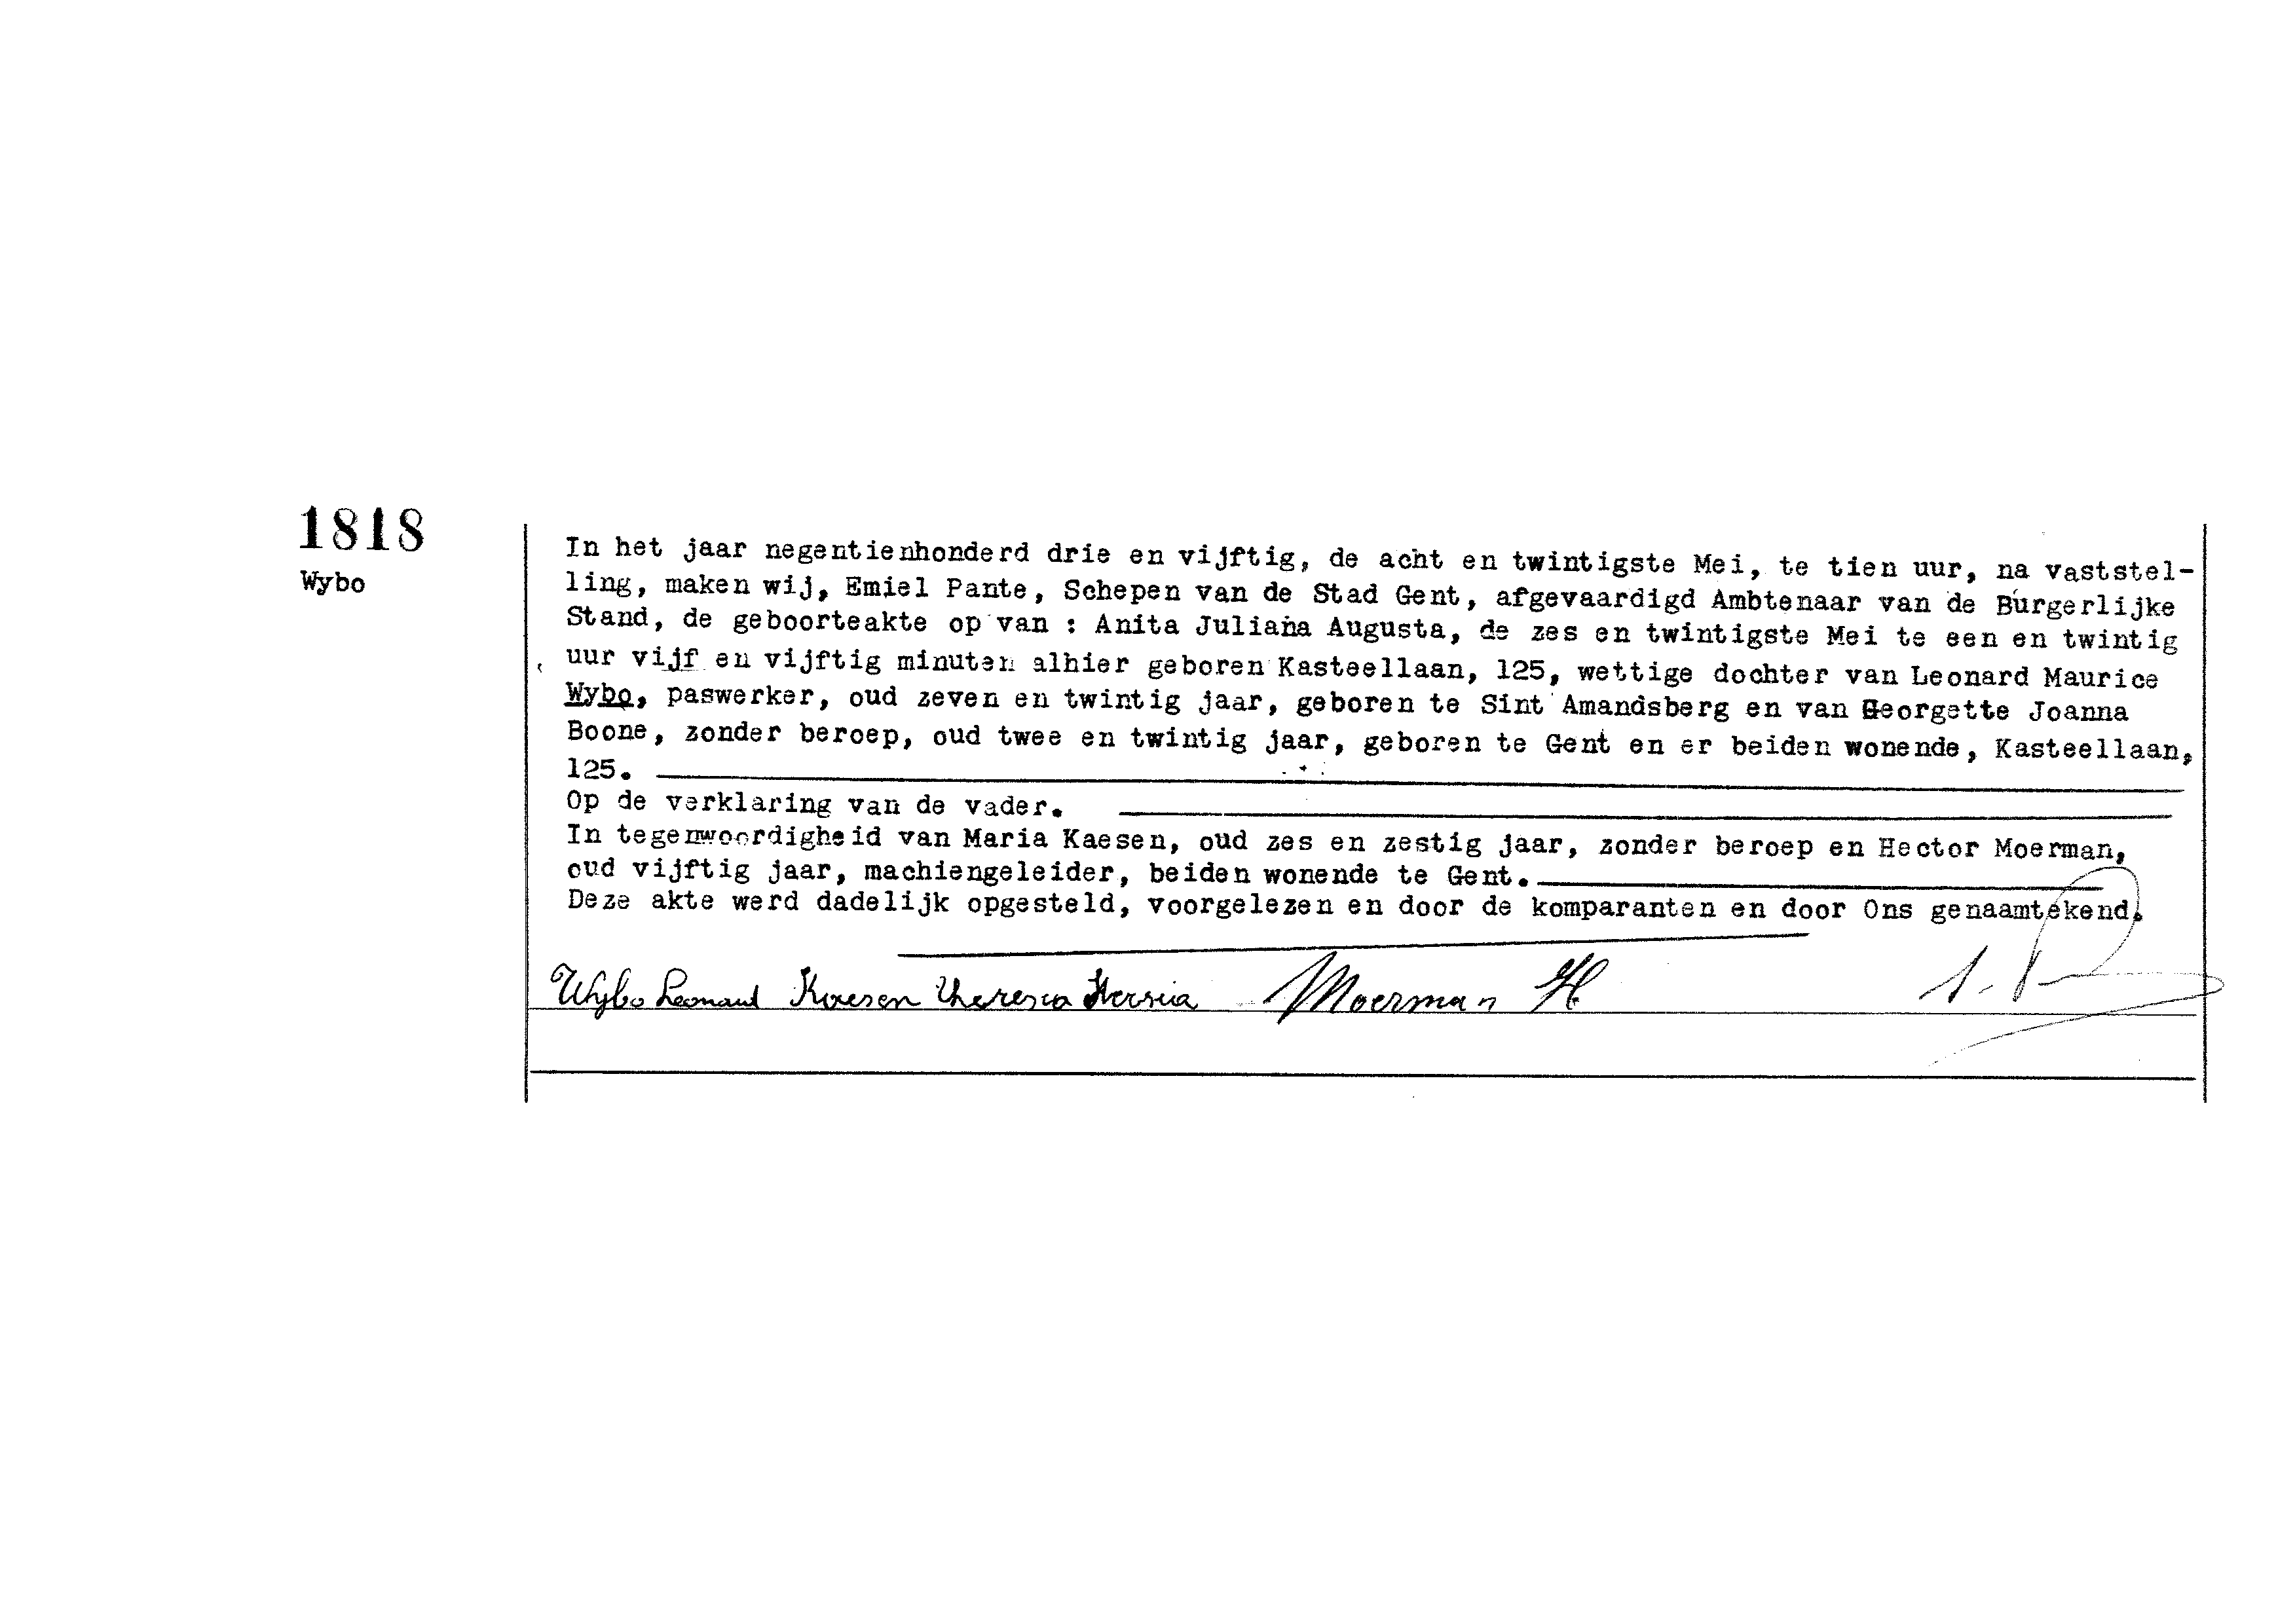 1818
Wybo
In het jaar negentienhonderd drie en vijftig, de acht en twintigste Mei, te tien uur, na vaststel-
ling, maken wij, Emiel Pante, Schepen van de Stad Gent, afgevaardigd Ambtenaar van de Burgerlijke
Stand, de geboorteakte op van : Anita Juliana Augusta, de zes en twintigste Mei te een en twintig
uur vijf en vijftig minuten alhier geboren Kasteellaan, 125, wettige dochter van Leonard Maurice
Wybo, paswerker, oud zeven en twintig jaar, geboren te Sint Amandsberg en van Georgette Joanna
Boone, zonder beroep, oud twee en twintig jaar, geboren te Gent en er beiden wonende, Kasteellaan,
125.
Op de verklaring van de vader.
In tegenwoordigheid van Maria Kaesen, oud zes en zestig jaar, zonder beroep en Hector Moerman,
oud vijftig jaar, machiengeleider, beiden wonende te Gent.
Deze akte werd dadelijk opgesteld, voorgelezen en door de komparanten en door Ons genaamtekend.
Wybo Leonard Kaesen Theresia Moerman H